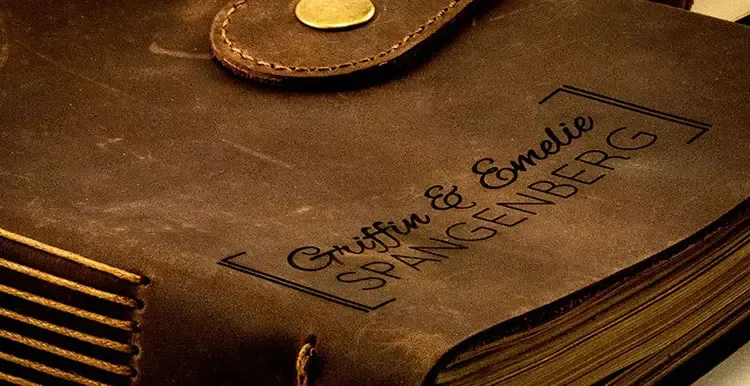 Griffin & Emelie
SPANGENBERG